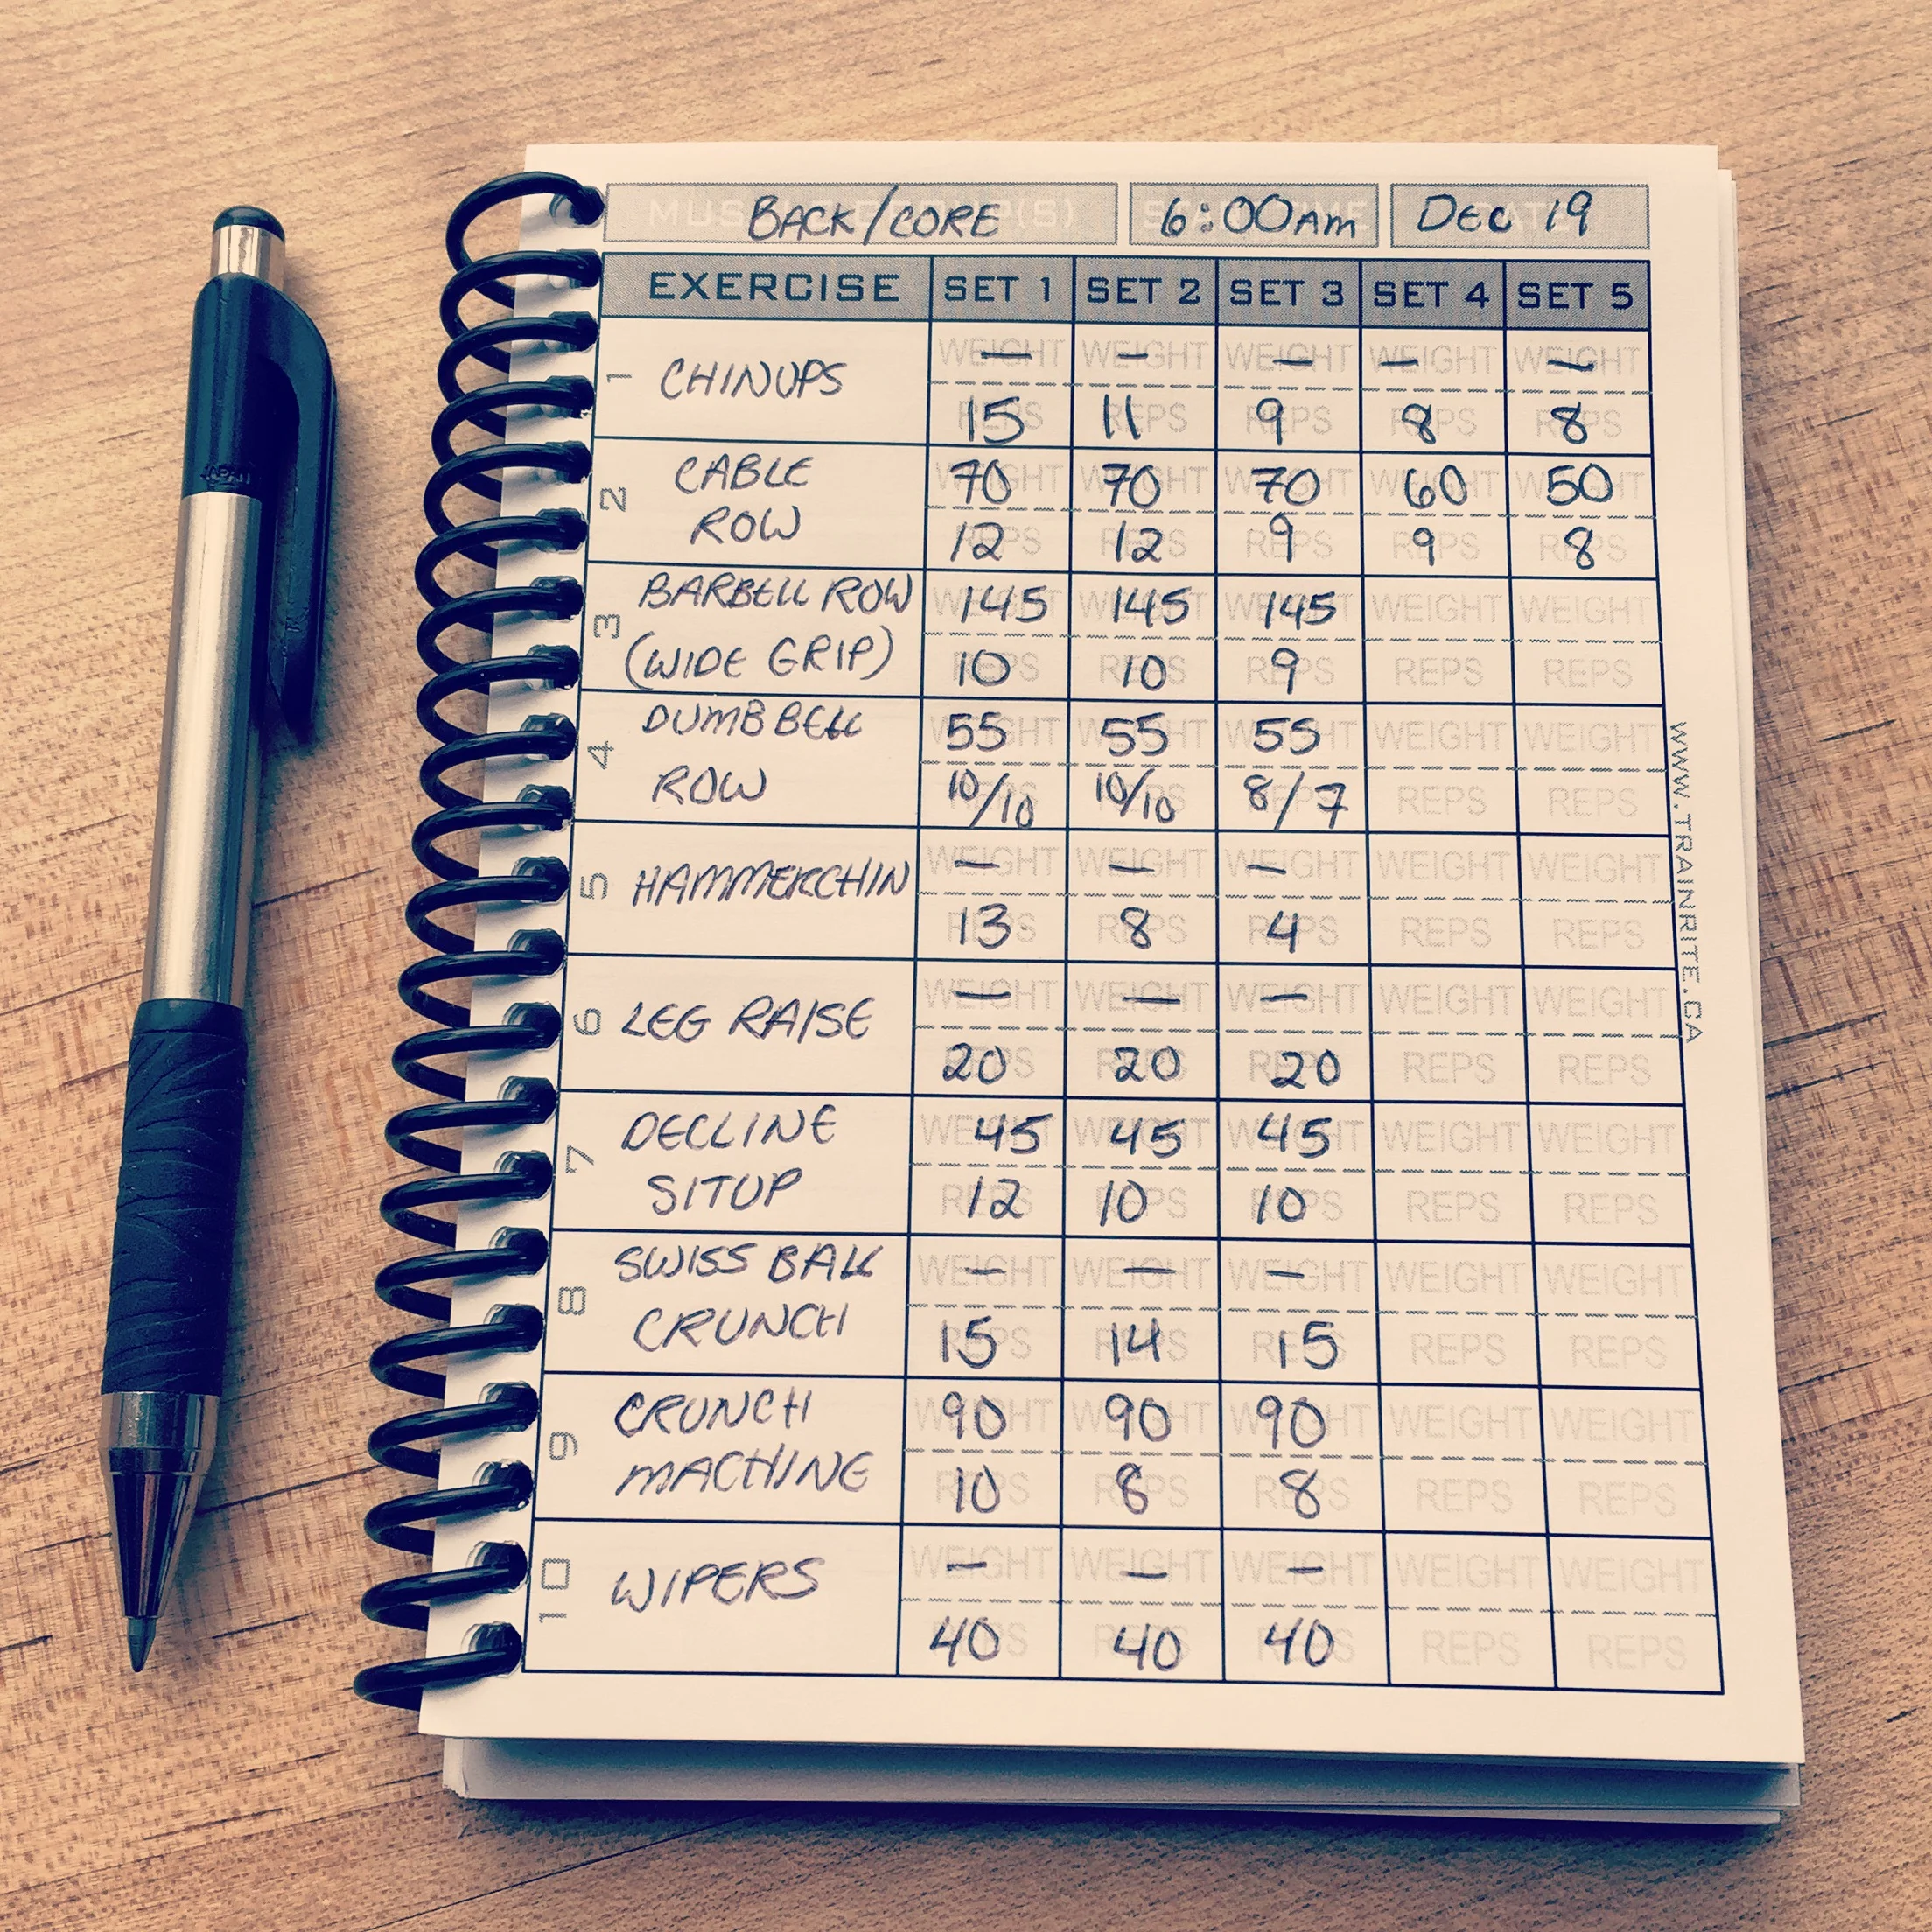 BACK/CORE 6:00AM DEC 19
EXERCISE SET 1 SET 2 SET 3 SET 4 SET 5
1 CHINUPS
WEIGHT — WEIGHT — WEIGHT — WEIGHT — WEIGHT —
REPS 15 REPS 11 REPS 9 REPS 8 REPS 8
2 CABLE WEIGHT 70 WEIGHT 70 WEIGHT 70 WEIGHT 60 WEIGHT 50
ROW REPS 12 REPS 12 REPS 9 REPS 9 REPS 8
3 BARBELL ROW WEIGHT 145 WEIGHT 145 WEIGHT 145 WEIGHT WEIGHT
(WIDE GRIP) REPS 10 REPS 10 REPS 9 REPS REPS
4 DUMBBELL WEIGHT 55 WEIGHT 55 WEIGHT 55 WEIGHT WEIGHT
ROW REPS 10/10 REPS 10/10 REPS 8/7 REPS REPS
5 HAMMERCHIN
WEIGHT — WEIGHT — WEIGHT — WEIGHT WEIGHT
REPS 13 REPS 8 REPS 4 REPS REPS
6 LEG RAISE
WEIGHT — WEIGHT — WEIGHT — WEIGHT WEIGHT
REPS 20 REPS 20 REPS 20 REPS REPS
7 DECLINE WEIGHT 45 WEIGHT 45 WEIGHT 45 WEIGHT WEIGHT
SITUP REPS 12 REPS 10 REPS 10 REPS REPS
8 SWISS BALL WEIGHT — WEIGHT — WEIGHT — WEIGHT WEIGHT
CRUNCH REPS 15 REPS 14 REPS 15 REPS REPS
9 CRUNCH WEIGHT 90 WEIGHT 90 WEIGHT 90 WEIGHT WEIGHT
MACHINE REPS 10 REPS 8 REPS 8 REPS REPS
10 WIPERS
WEIGHT — WEIGHT — WEIGHT — WEIGHT WEIGHT
REPS 40 REPS 40 REPS 40 REPS REPS
WWW.TRAINRITE.CA
JAPAN